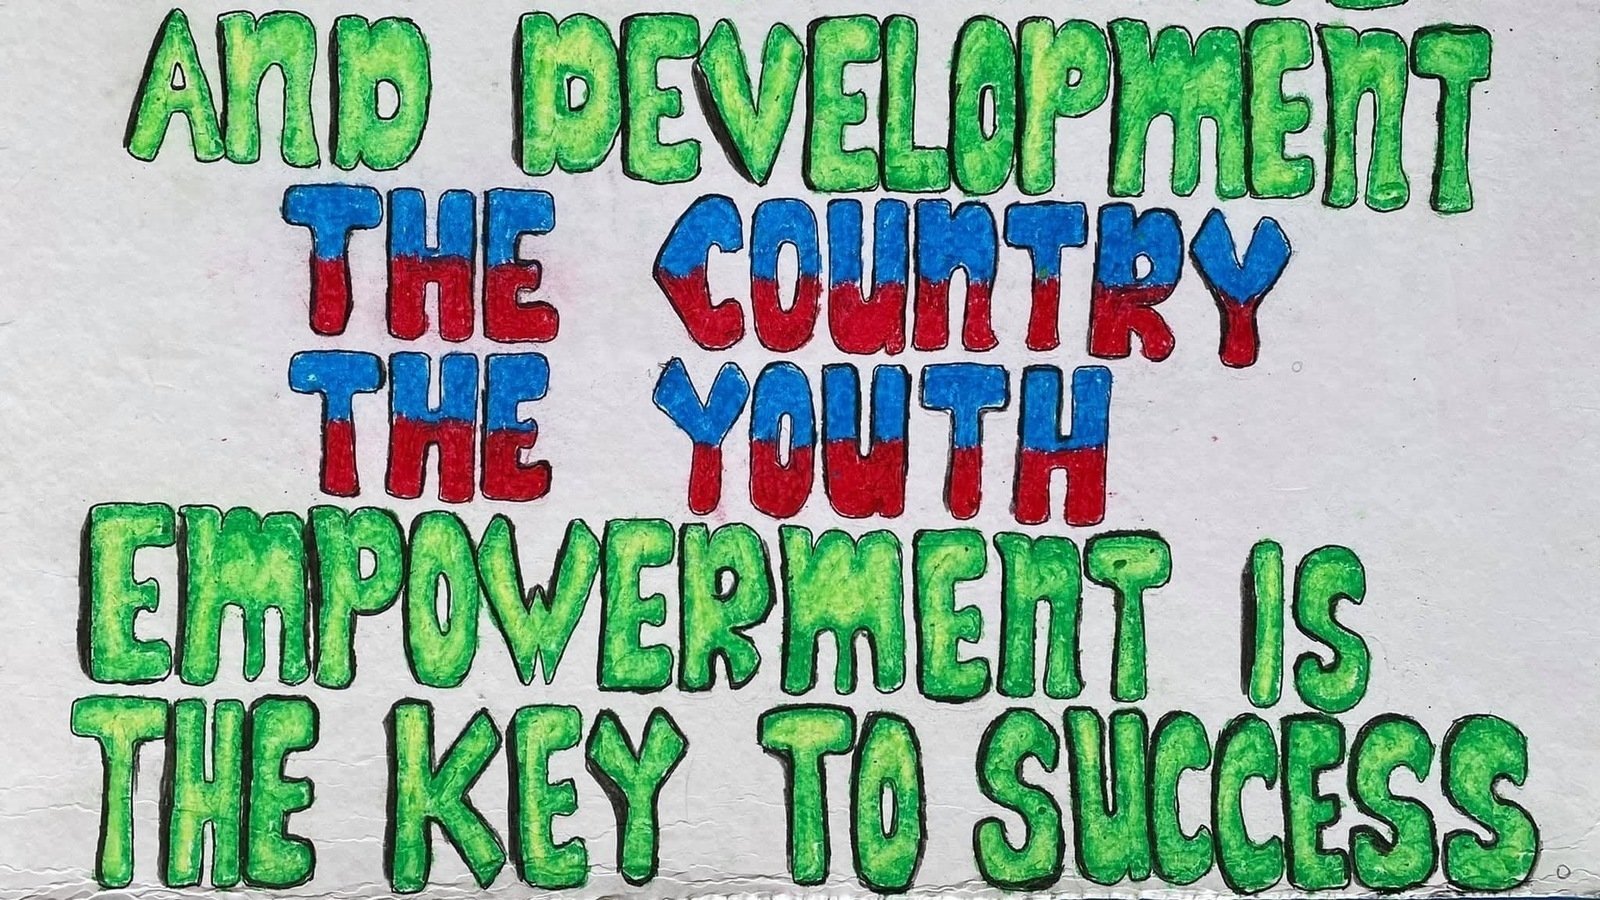 AND DEVELOPMENT
THE COUNTRY
THE YOUTH
EMPOWERMENT IS
THE KEY TO SUCCESS